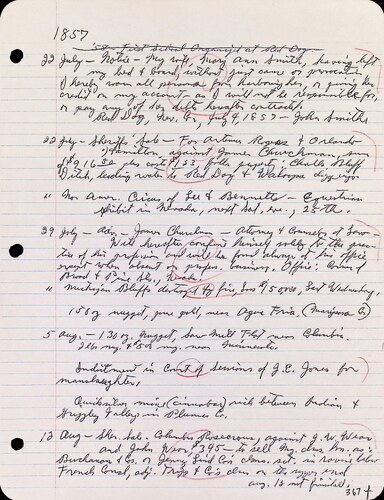 1857
'52 First School Organized at Red Dog
22 July - Notice - My wife, Mary Ann Smith, having left
my bed & board, without just cause or provocation,
I hereby warn all persons for harboring her, or giving her
credit on my account as I will not be responsible for,
or pay any of her debts hereafter contracted.
Red Dog, Nev. Co., July 9, 1857 - John Smiths
22 July - Sheriffs' Sale - For Artemus Rogers & Orlando
against James Churchman, sum
of $916 plus costs $133 property: Chalk Bluff
Ditch, leading water to Red Dog & Walloupa diggings.
" No. Amer. Circus of Lee & Bennette - Equestrian
exhibit in Nevada, next Sat., 25th.
29 July - Adv. - James Churchman - Attorney & Counselor of Law
Will hereafter confine himself solely to the practice
of his profession and will be found always at his office
except when absent on profess. business. Office: Corner of
Broad & Pine Sts., Nevada.
" Michigan Bluffs destroyed by fire, last Wednesday,
15 oz nugget, pure gold, near Agua Fria, (Mariposa Co)
5 Aug. - 130 oz. nugget, Saw Mill Flat near Columbia.
26 lb ny. & 50 lb ny. near Minnesota.
Indictment in Court of Sessions of J.C. Jones for
manslaughter.
Quicksilver mine (cinnabar) rich between Indian &
Grizzly Valleys in Plumas Co.
12 Aug - Sher. Sale - Columbus Rosecrans, against J.W. Wear
and John Wear $395 - to sell
Buchanan & Co. or Jenny Lind Co's clms. sit. in
French Corral, adj. & Co's clms on the upper end
Aug. 16 not finished.
367